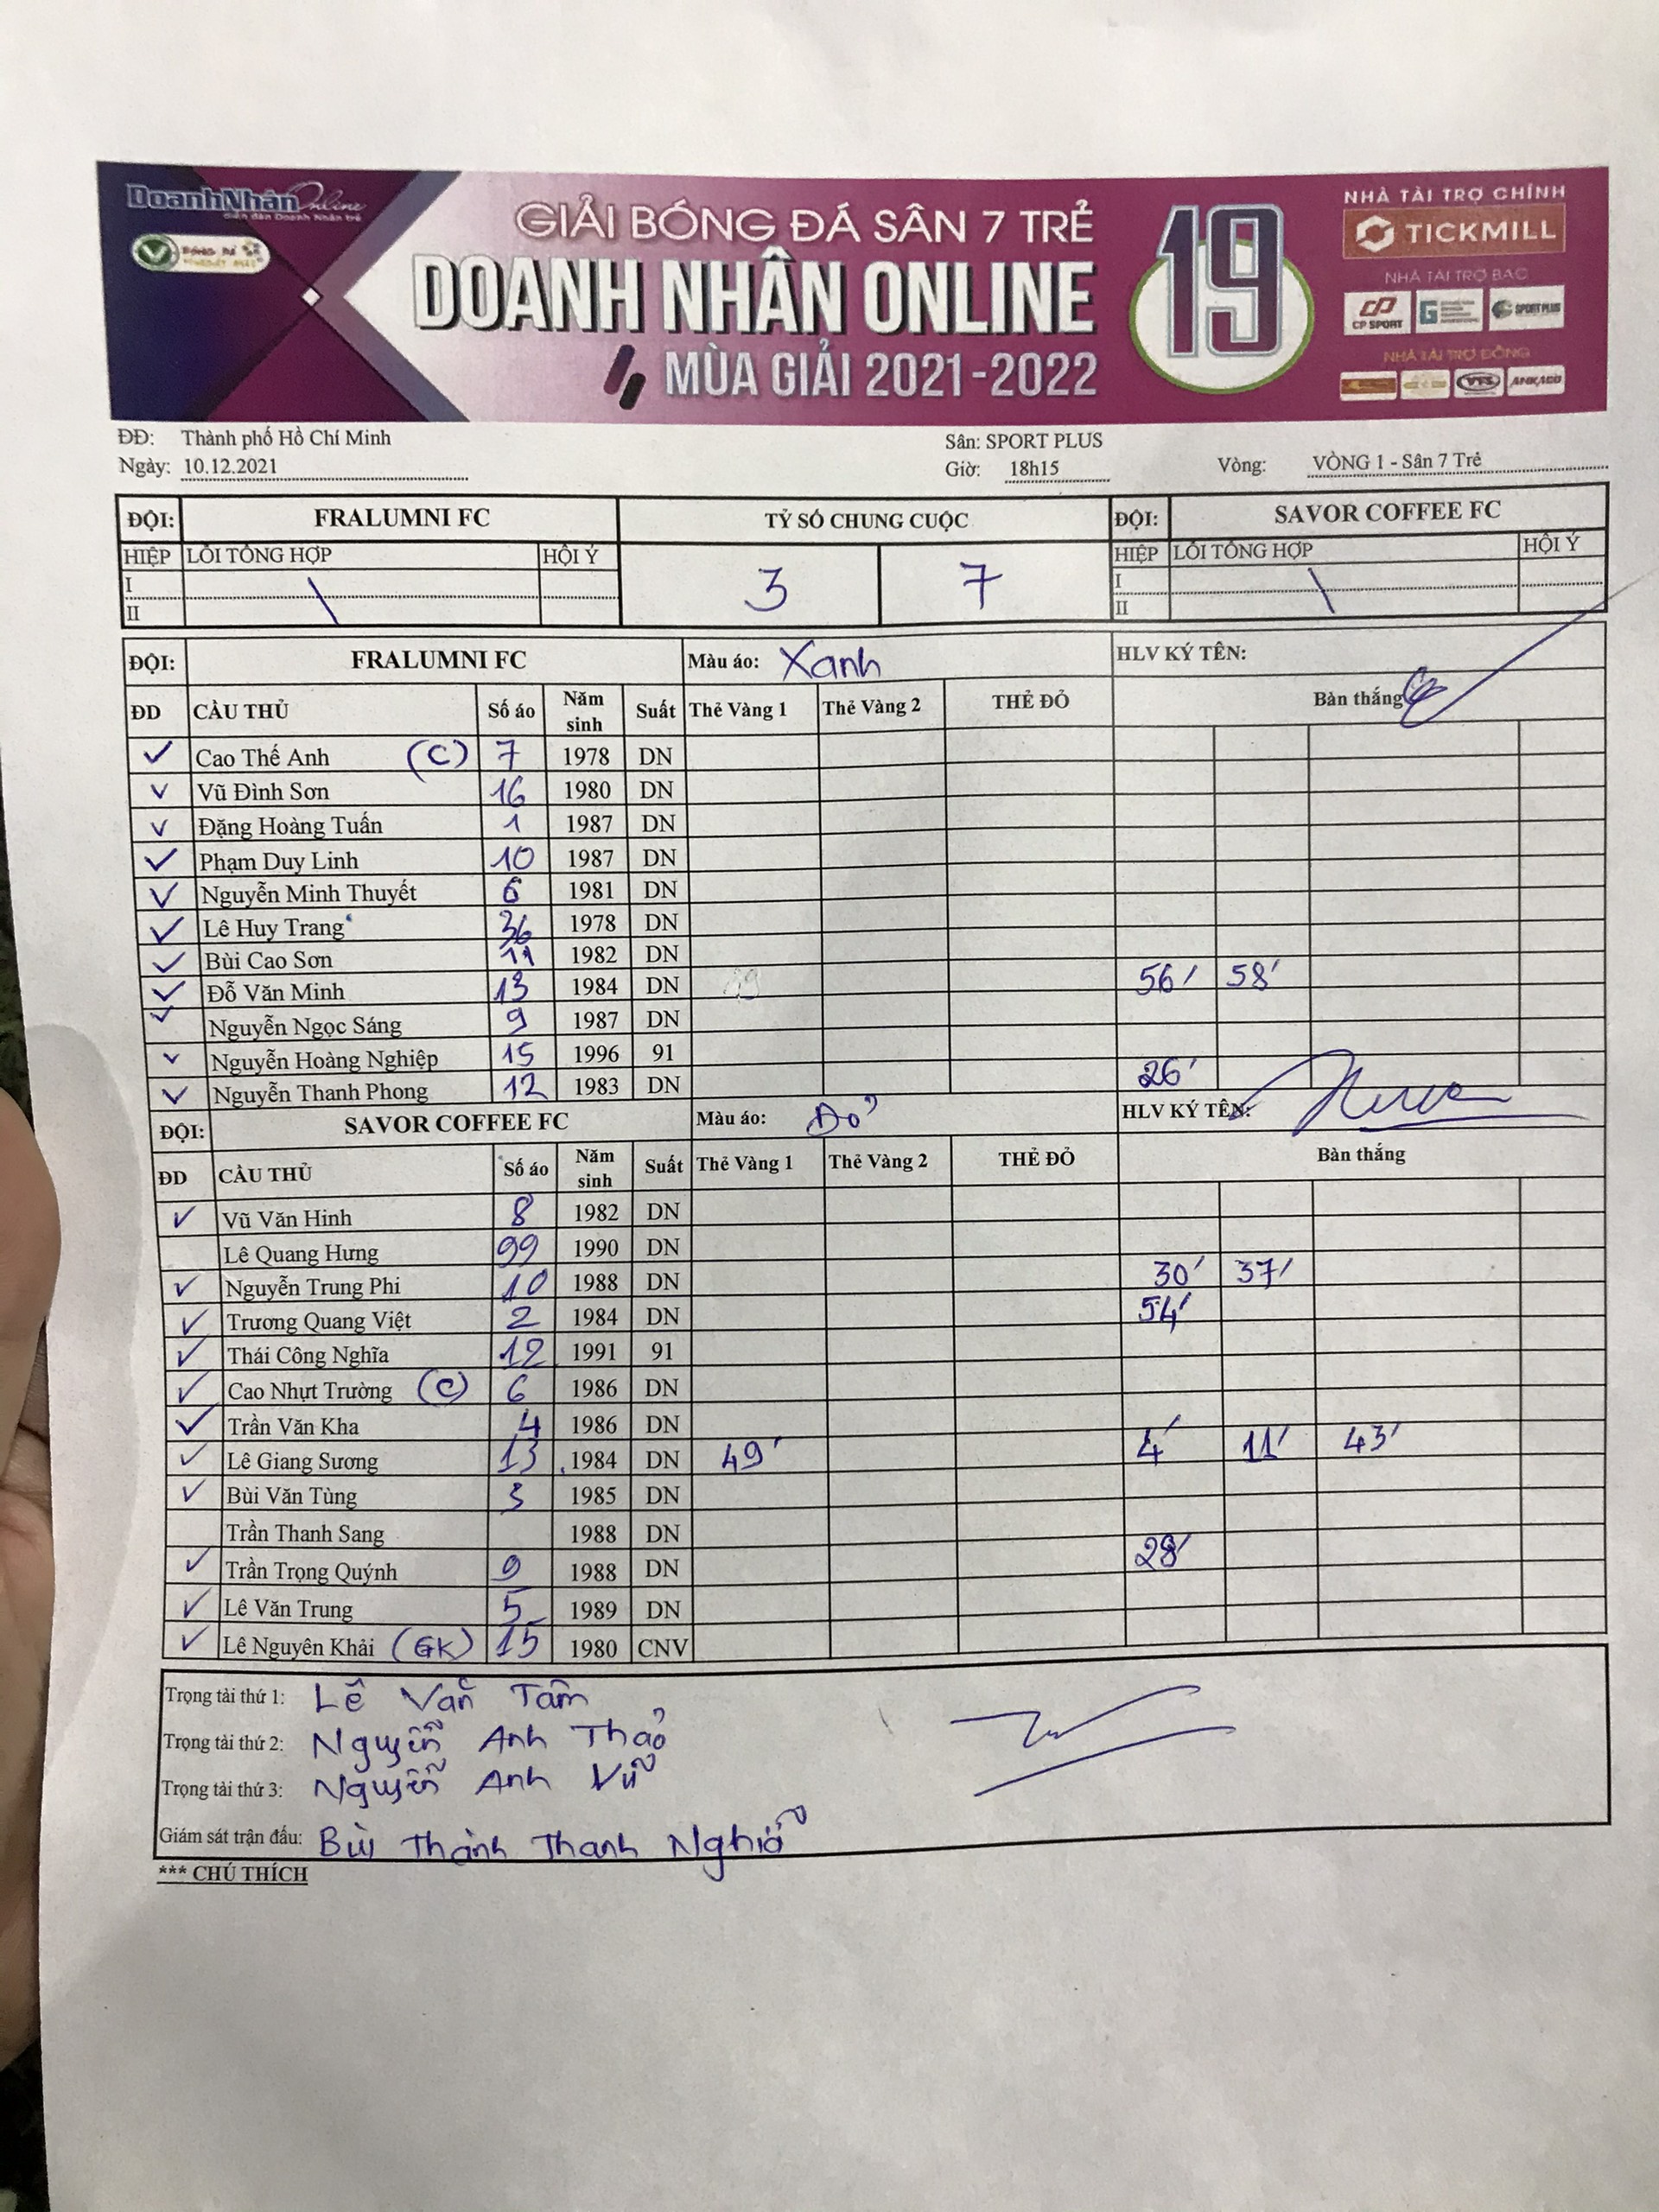 DoanhNhân Online
diễn đàn Doanh Nhân trẻ
GIẢI BÓNG ĐÁ SÂN 7 TRẺ
DOANH NHÂN ONLINE
MÙA GIẢI 2021-2022
19
NHÀ TÀI TRỢ CHÍNH
TICKMILL
NHÀ TÀI TRỢ BẠC
CP SPORT SPORT PLUS
NHÀ TÀI TRỢ ĐỒNG
VTS ANKACO
ĐĐ: Thành phố Hồ Chí Minh Sân: SPORT PLUS
Ngày: 10.12.2021 Giờ: 18h15 Vòng: VÒNG 1 - Sân 7 Trẻ
ĐỘI: FRALUMNI FC TỶ SỐ CHUNG CUỘC ĐỘI: SAVOR COFFEE FC
HIỆP LỖI TỔNG HỢP HỘI Ý 3 7 HIỆP LỖI TỔNG HỢP HỘI Ý
I I
II II
ĐỘI: FRALUMNI FC Màu áo: Xanh HLV KÝ TÊN:
ĐD CẦU THỦ Số áo Năm sinh Suất Thẻ Vàng 1 Thẻ Vàng 2 THẺ ĐỎ Bàn thắng
Cao Thế Anh (C) 7 1978 DN
Vũ Đình Sơn 16 1980 DN
Đặng Hoàng Tuấn 1 1987 DN
Phạm Duy Linh 10 1987 DN
Nguyễn Minh Thuyết 6 1981 DN
Lê Huy Trang 36 1978 DN
Bùi Cao Sơn 11 1982 DN
Đỗ Văn Minh 13 1984 DN 56' 58'
Nguyễn Ngọc Sáng 9 1987 DN
Nguyễn Hoàng Nghiệp 15 1996 91
Nguyễn Thanh Phong 12 1983 DN 26'
ĐỘI: SAVOR COFFEE FC Màu áo: Đỏ HLV KÝ TÊN:
ĐD CẦU THỦ Số áo Năm sinh Suất Thẻ Vàng 1 Thẻ Vàng 2 THẺ ĐỎ Bàn thắng
Vũ Văn Hinh 8 1982 DN
Lê Quang Hưng 99 1990 DN
Nguyễn Trung Phi 10 1988 DN 30' 37'
Trương Quang Việt 2 1984 DN 54'
Thái Công Nghĩa 12 1991 91
Cao Nhựt Trường (C) 6 1986 DN
Trần Văn Kha 4 1986 DN
Lê Giang Sương 13 1984 DN 49' 4' 11' 43'
Bùi Văn Tùng 3 1985 DN
Trần Thanh Sang 1988 DN
Trần Trọng Quýnh 9 1988 DN 28'
Lê Văn Trung 5 1989 DN
Lê Nguyên Khải (GK) 15 1980 CNV
Trọng tài thứ 1: Lê Văn Tâm
Trọng tài thứ 2: Nguyễn Anh Thảo
Trọng tài thứ 3: Nguyễn Anh Vũ
Giám sát trận đấu: Bùi Thành Thanh Nghĩa
*** CHÚ THÍCH